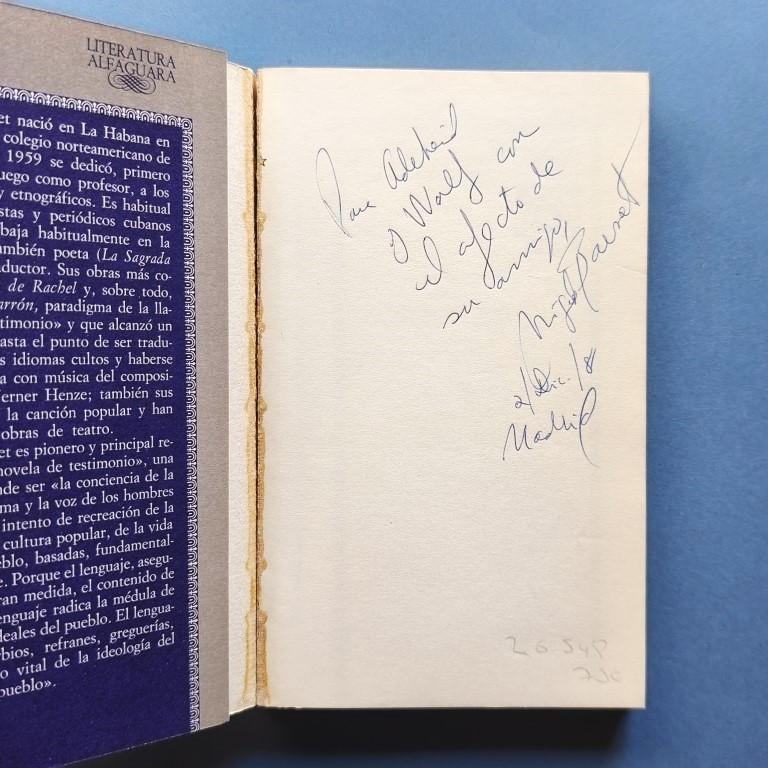 LITERATURA
ALFAGUARA
et nació en La Habana en
colegio norteamericano de
1959 se dedicó, primero
uego como profesor, a los
y etnográficos. Es habitual
stas y periódicos cubanos
baja habitualmente en la
ambién poeta (La Sagrada
ductor. Sus obras más co-
de Rachel y, sobre todo,
arrón, paradigma de la lla-
timonio» y que alcanzó un
asta el punto de ser tradu-
s idiomas cultos y haberse
a con música del composi-
erner Henze; también sus
la canción popular y han
obras de teatro.
et es pionero y principal re-
novela de testimonio», una
nde ser «la conciencia de la
ma y la voz de los hombres
intento de recreación de la
cultura popular, de la vida
eblo, basadas, fundamental-
e. Porque el lenguaje, asegu-
ran medida, el contenido de
enguaje radica la médula de
deales del pueblo. El lengua-
rbios, refranes, greguerías,
o vital de la ideología del
pueblo».
Para
Wolf con
el afecto de
su amigo,
Miguel Barnet
2/Dic./8
Madrid